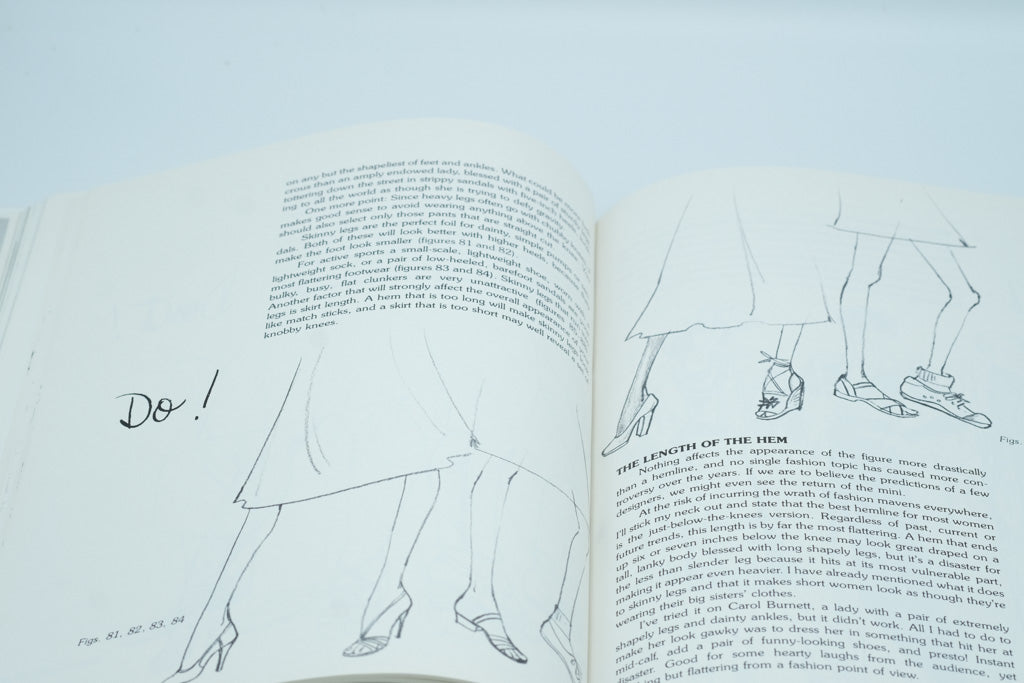 on any but the shapeliest of feet and ankles. What could be
crous than an amply endowed lady, blessed with a pair of
tottering down the street in strippy sandals with five-inch
ing to all the world as though she is trying to defy
One more point: Since heavy legs often go with chunky
makes good sense to avoid wearing anything above
should also select only those pants that are straight cut.
Skinny legs are the perfect foil for dainty, simple pumps
dals. Both of these will look better with higher heels,
make the foot look smaller (figures 81 and 82).
For active sports a small-scale, lightweight shoe, worn
lightweight sock, or a pair of low-heeled, barefoot sandals
most flattering footwear (figures 83 and 84). Skinny legs
bulky, busy, flat clunkers are very unattractive (figures
Another factor that will strongly affect the overall appearance of
legs is skirt length. A hem that is too long will make skinny legs
like match sticks, and a skirt that is too short may well reveal a
knobby knees.
Do!
Figs. 81, 82, 83, 84
Figs.
THE LENGTH OF THE HEM
Nothing affects the appearance of the figure more drastically
than a hemline, and no single fashion topic has caused more con-
troversy over the years. If we are to believe the predictions of a few
designers, we might even see the return of the mini.
At the risk of incurring the wrath of fashion mavens everywhere,
I'll stick my neck out and state that the best hemline for most women
is the just-below-the-knees version. Regardless of past, current or
future trends, this length is by far the most flattering. A hem that ends
up six or seven inches below the knee may look great draped on a
tall, lanky body blessed with long shapely legs, but it's a disaster for
the less than slender leg because it hits at its most vulnerable part,
making it appear even heavier. I have already mentioned what it does
to skinny legs and that it makes short women look as though they're
wearing their big sisters' clothes.
I've tried it on Carol Burnett, a lady with a pair of extremely
shapely legs and dainty ankles, but it didn't work. All I had to do to
make her look gawky was to dress her in something that hit her at
mid-calf, add a pair of funny-looking shoes, and presto! Instant
disaster. Good for some hearty laughs from the audience, yet
but flattering from a fashion point of view.